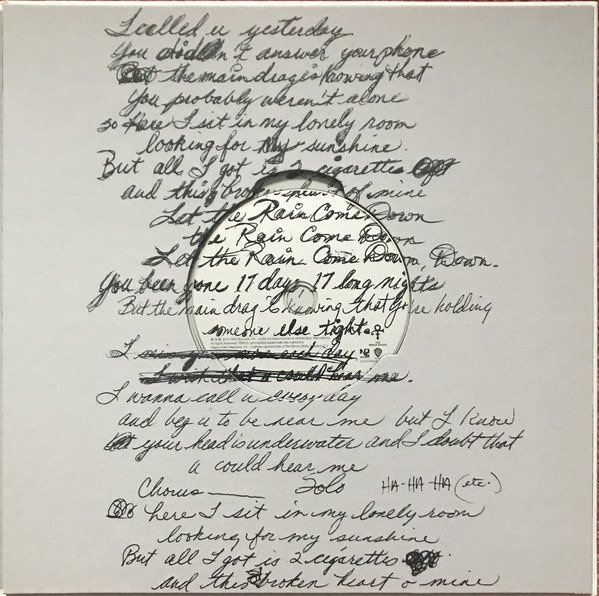 I called u yesterday
You didn't answer your phone
But the main drag is knowing that
You probably weren't alone
so here I sit in my lonely room
looking for my sunshine.
But all I got is 2 cigarettes
and this broken of mine
Let the Rain Come Down
the Rain Come Down
Let the Rain Come Down, Down.
You been gone 17 days 17 long nights
But the main drag is knowing that holding
someone else tight
I miss you mine each day
I wish that u could hear me.
I wanna call u everyday
and beg u to be near me but I Know
your head is underwater and I doubt that
u could hear me
Chorus — Solo HA-HA-HA (etc.)
here I sit in my lonely room
looking for my sunshine
But all I got is 2 cigarettes
and this broken heart o mine